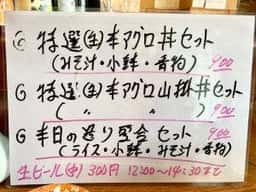 ◎ 特選(生)本マグロ丼セット
(みそ汁・小鉢・香物) 900
G 特選(生)本マグロ山掛丼セット
( 〃 〃 ) 900
G 本日の造り定食セット
(ライス・小鉢・みそ汁・香物)
生ビール(中)300円 12:00~14:30まで